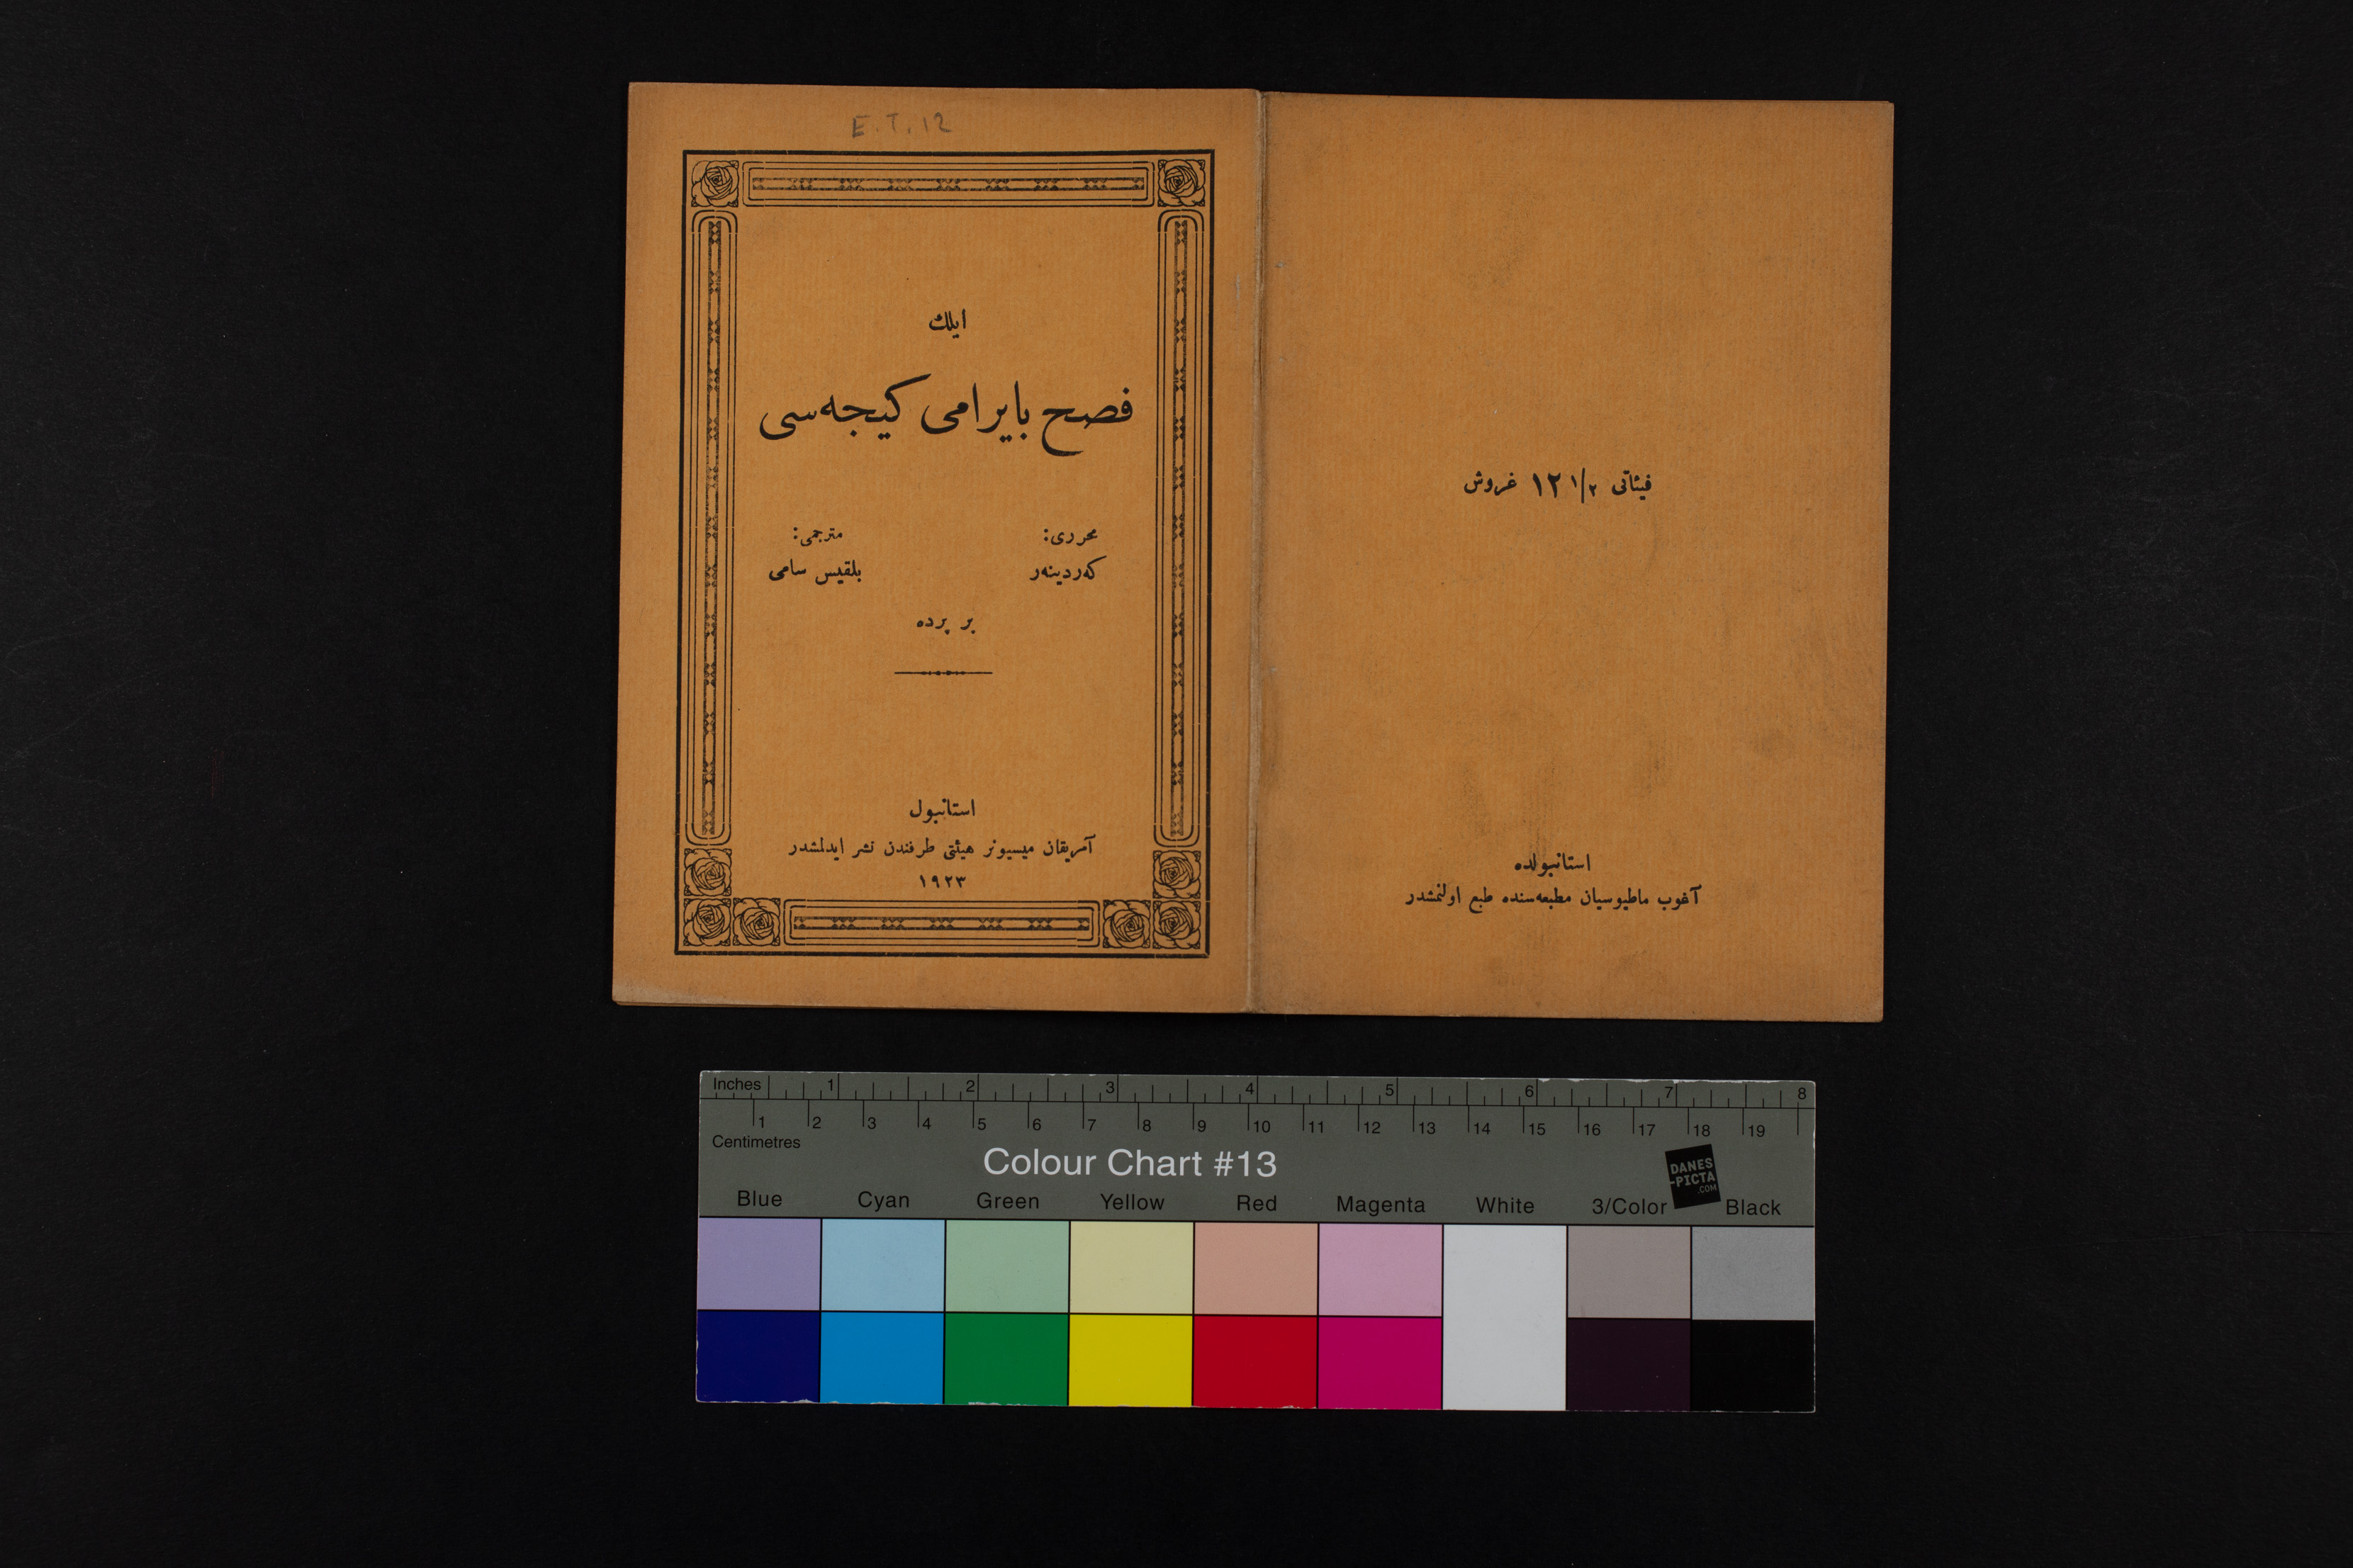 E.T.12
ايلك
فصح بايرامى كيجه‌سى
محررى: مترجمى:
كه‌ردينه‌ر بلقيس سامى
بر پرده
استانبول
آمريقان ميسيونر هيئتى طرفندن نشر ايدلمشدر
١٩٢٣
فيئاتى ١٢ ١/٢ غروش
استانبولده
آغوب ماطيوسيان مطبعه‌سنده طبع اولنمشدر
Inches 1 2 3 4 5 6 7 8
1 2 3 4 5 6 7 8 9 10 11 12 13 14 15 16 17 18 19
Centimetres
Colour Chart #13
DANES
-PICTA
.COM
Blue Cyan Green Yellow Red Magenta White 3/Color Black